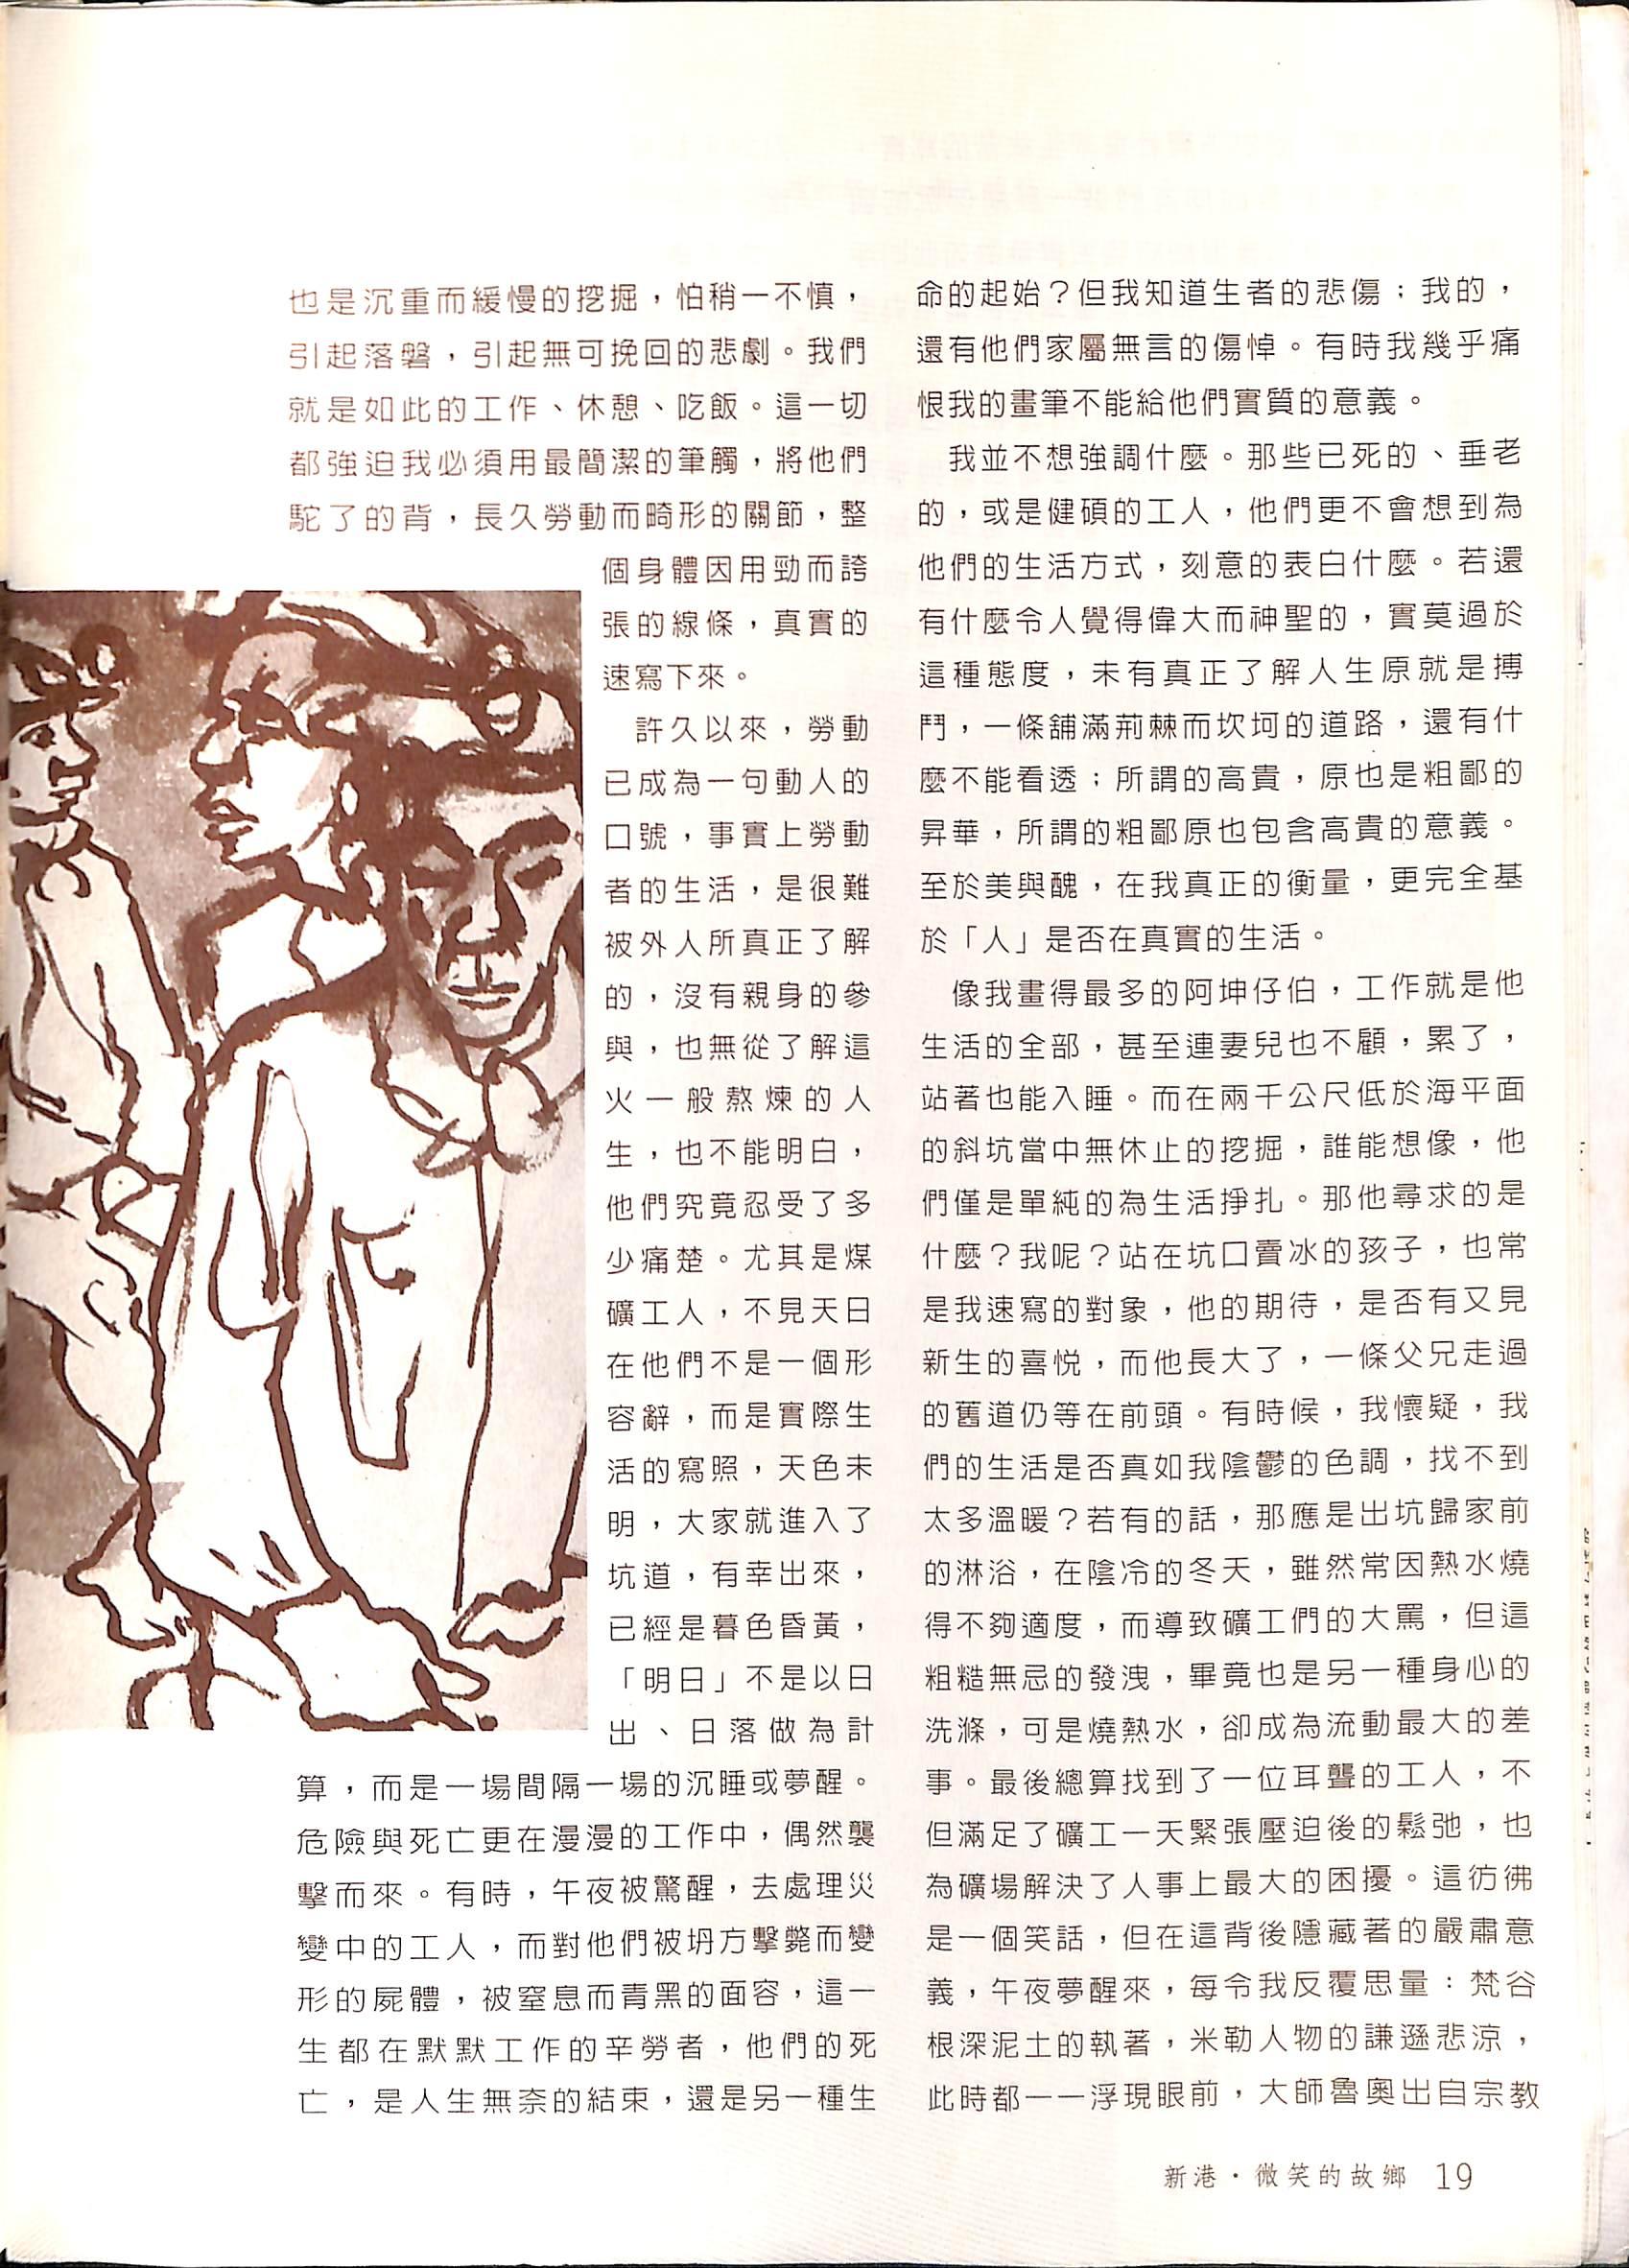 也是沉重而緩慢的挖掘，怕稍一不慎，
引起落磐，引起無可挽回的悲劇。我們
就是如此的工作、休憩、吃飯。這一切
都強迫我必須用最簡潔的筆觸，將他們
駝了的背，長久勞動而畸形的關節，整
個身體因用勁而誇
張的線條，真實的
速寫下來。
許久以來，勞動
已成為一句動人的
口號，事實上勞動
者的生活，是很難
被外人所真正了解
的，沒有親身的參
與，也無從了解這
火一般熬煉的人
生，也不能明白，
他們究竟忍受了多
少痛楚。尤其是煤
礦工人，不見天日
在他們不是一個形
容辭，而是實際生
活的寫照，天色未
明，大家就進入了
坑道，有幸出來，
已經是暮色昏黃，
「明日」不是以日
出、日落做為計
算，而是一場間隔一場的沉睡或夢醒。
危險與死亡更在漫漫的工作中，偶然襲
擊而來。有時，午夜被驚醒，去處理災
變中的工人，而對他們被坍方擊斃而變
形的屍體，被窒息而青黑的面容，這一
生都在默默工作的辛勞者，他們的死
亡，是人生無奈的結束，還是另一種生
命的起始？但我知道生者的悲傷；我的，
還有他們家屬無言的傷悼。有時我幾乎痛
恨我的畫筆不能給他們實質的意義。
我並不想強調什麼。那些已死的、垂老
的，或是健碩的工人，他們更不會想到為
他們的生活方式，刻意的表白什麼。若還
有什麼令人覺得偉大而神聖的，實莫過於
這種態度，未有真正了解人生原就是搏
鬥，一條舖滿荊棘而坎坷的道路，還有什
麼不能看透；所謂的高貴，原也是粗鄙的
昇華，所謂的粗鄙原也包含高貴的意義。
至於美與醜，在我真正的衡量，更完全基
於「人」是否在真實的生活。
像我畫得最多的阿坤仔伯，工作就是他
生活的全部，甚至連妻兒也不顧，累了，
站著也能入睡。而在兩千公尺低於海平面
的斜坑當中無休止的挖掘，誰能想像，他
們僅是單純的為生活掙扎。那他尋求的是
什麼？我呢？站在坑口賣冰的孩子，也常
是我速寫的對象，他的期待，是否有又見
新生的喜悅，而他長大了，一條父兄走過
的舊道仍等在前頭。有時候，我懷疑，我
們的生活是否真如我陰鬱的色調，找不到
太多溫暖？若有的話，那應是出坑歸家前
的淋浴，在陰冷的冬天，雖然常因熱水燒
得不夠適度，而導致礦工們的大罵，但這
粗糙無忌的發洩，畢竟也是另一種身心的
洗滌，可是燒熱水，卻成為流動最大的差
事。最後總算找到了一位耳聾的工人，不
但滿足了礦工一天緊張壓迫後的鬆弛，也
為礦場解決了人事上最大的困擾。這彷彿
是一個笑話，但在這背後隱藏著的嚴肅意
義，午夜夢醒來，每令我反覆思量：梵谷
根深泥土的執著，米勒人物的謙遜悲涼，
此時都一一浮現眼前，大師魯奧出自宗教
新港・微笑的故鄉 19